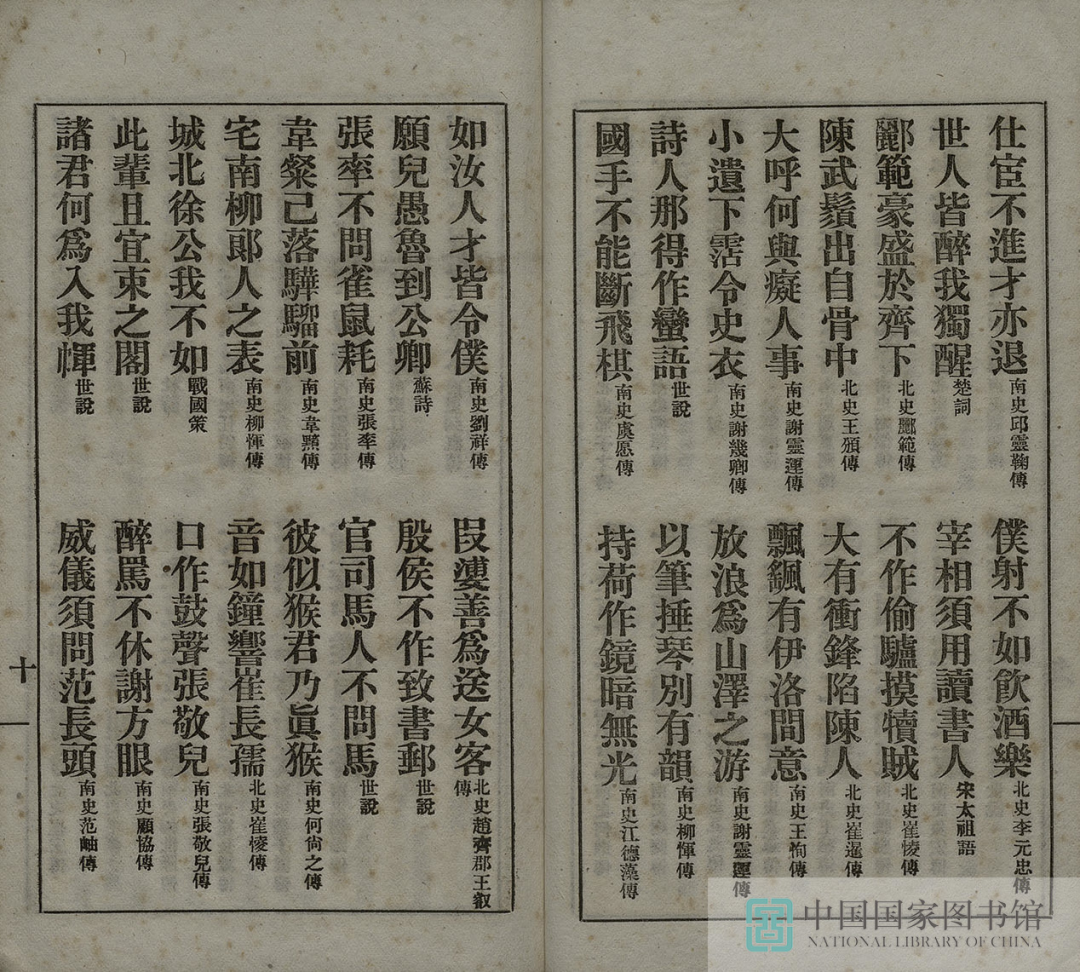 仕宦不進才亦退南史邱靈鞠傳
僕射不如飲酒樂北史李元忠傳
世人皆醉我獨醒楚詞
宰相須用讀書人宋太祖語
酈範豪盛於齊下北史酈範傳
不作偷驢摸犢賊北史崔㥄傳
陳武鬚出自骨中北史王頒傳
大有衝鋒陷陳人北史崔暹傳
大呼何與癡人事南史謝靈運傳
飄颻有伊洛間意南史王恂傳
小遺下霑令史衣南史謝幾卿傳
放浪爲山澤之游南史謝靈運傳
詩人那得作蠻語世說
以筆捶琴別有韻南史柳惲傳
國手不能斷飛棋南史虞愿傳
持荷作鏡暗無光南史江德藻傳
如汝人才皆令僕南史劉祥傳
叚婆善爲送女客北史趙齊郡王叡傳
願兒愚魯到公卿蘇詩
殷侯不作致書郵世說
張率不問雀鼠耗南史張率傳
官司馬人不問馬世說
韋粲己落驊騮前南史韋黯傳
彼似猴君乃眞猴南史何尙之傳
宅南柳郎人之表南史柳惲傳
音如鐘響崔長孺北史崔㥄傳
城北徐公我不如戰國策
口作鼓聲張敬兒南史張敬兒傳
此輩且宜束之閣世說
醉罵不休謝方眼南史顧協傳
諸君何爲入我褌世說
威儀須問范長頭南史范岫傳
十
中国国家图书馆
NATIONAL LIBRARY OF CHINA